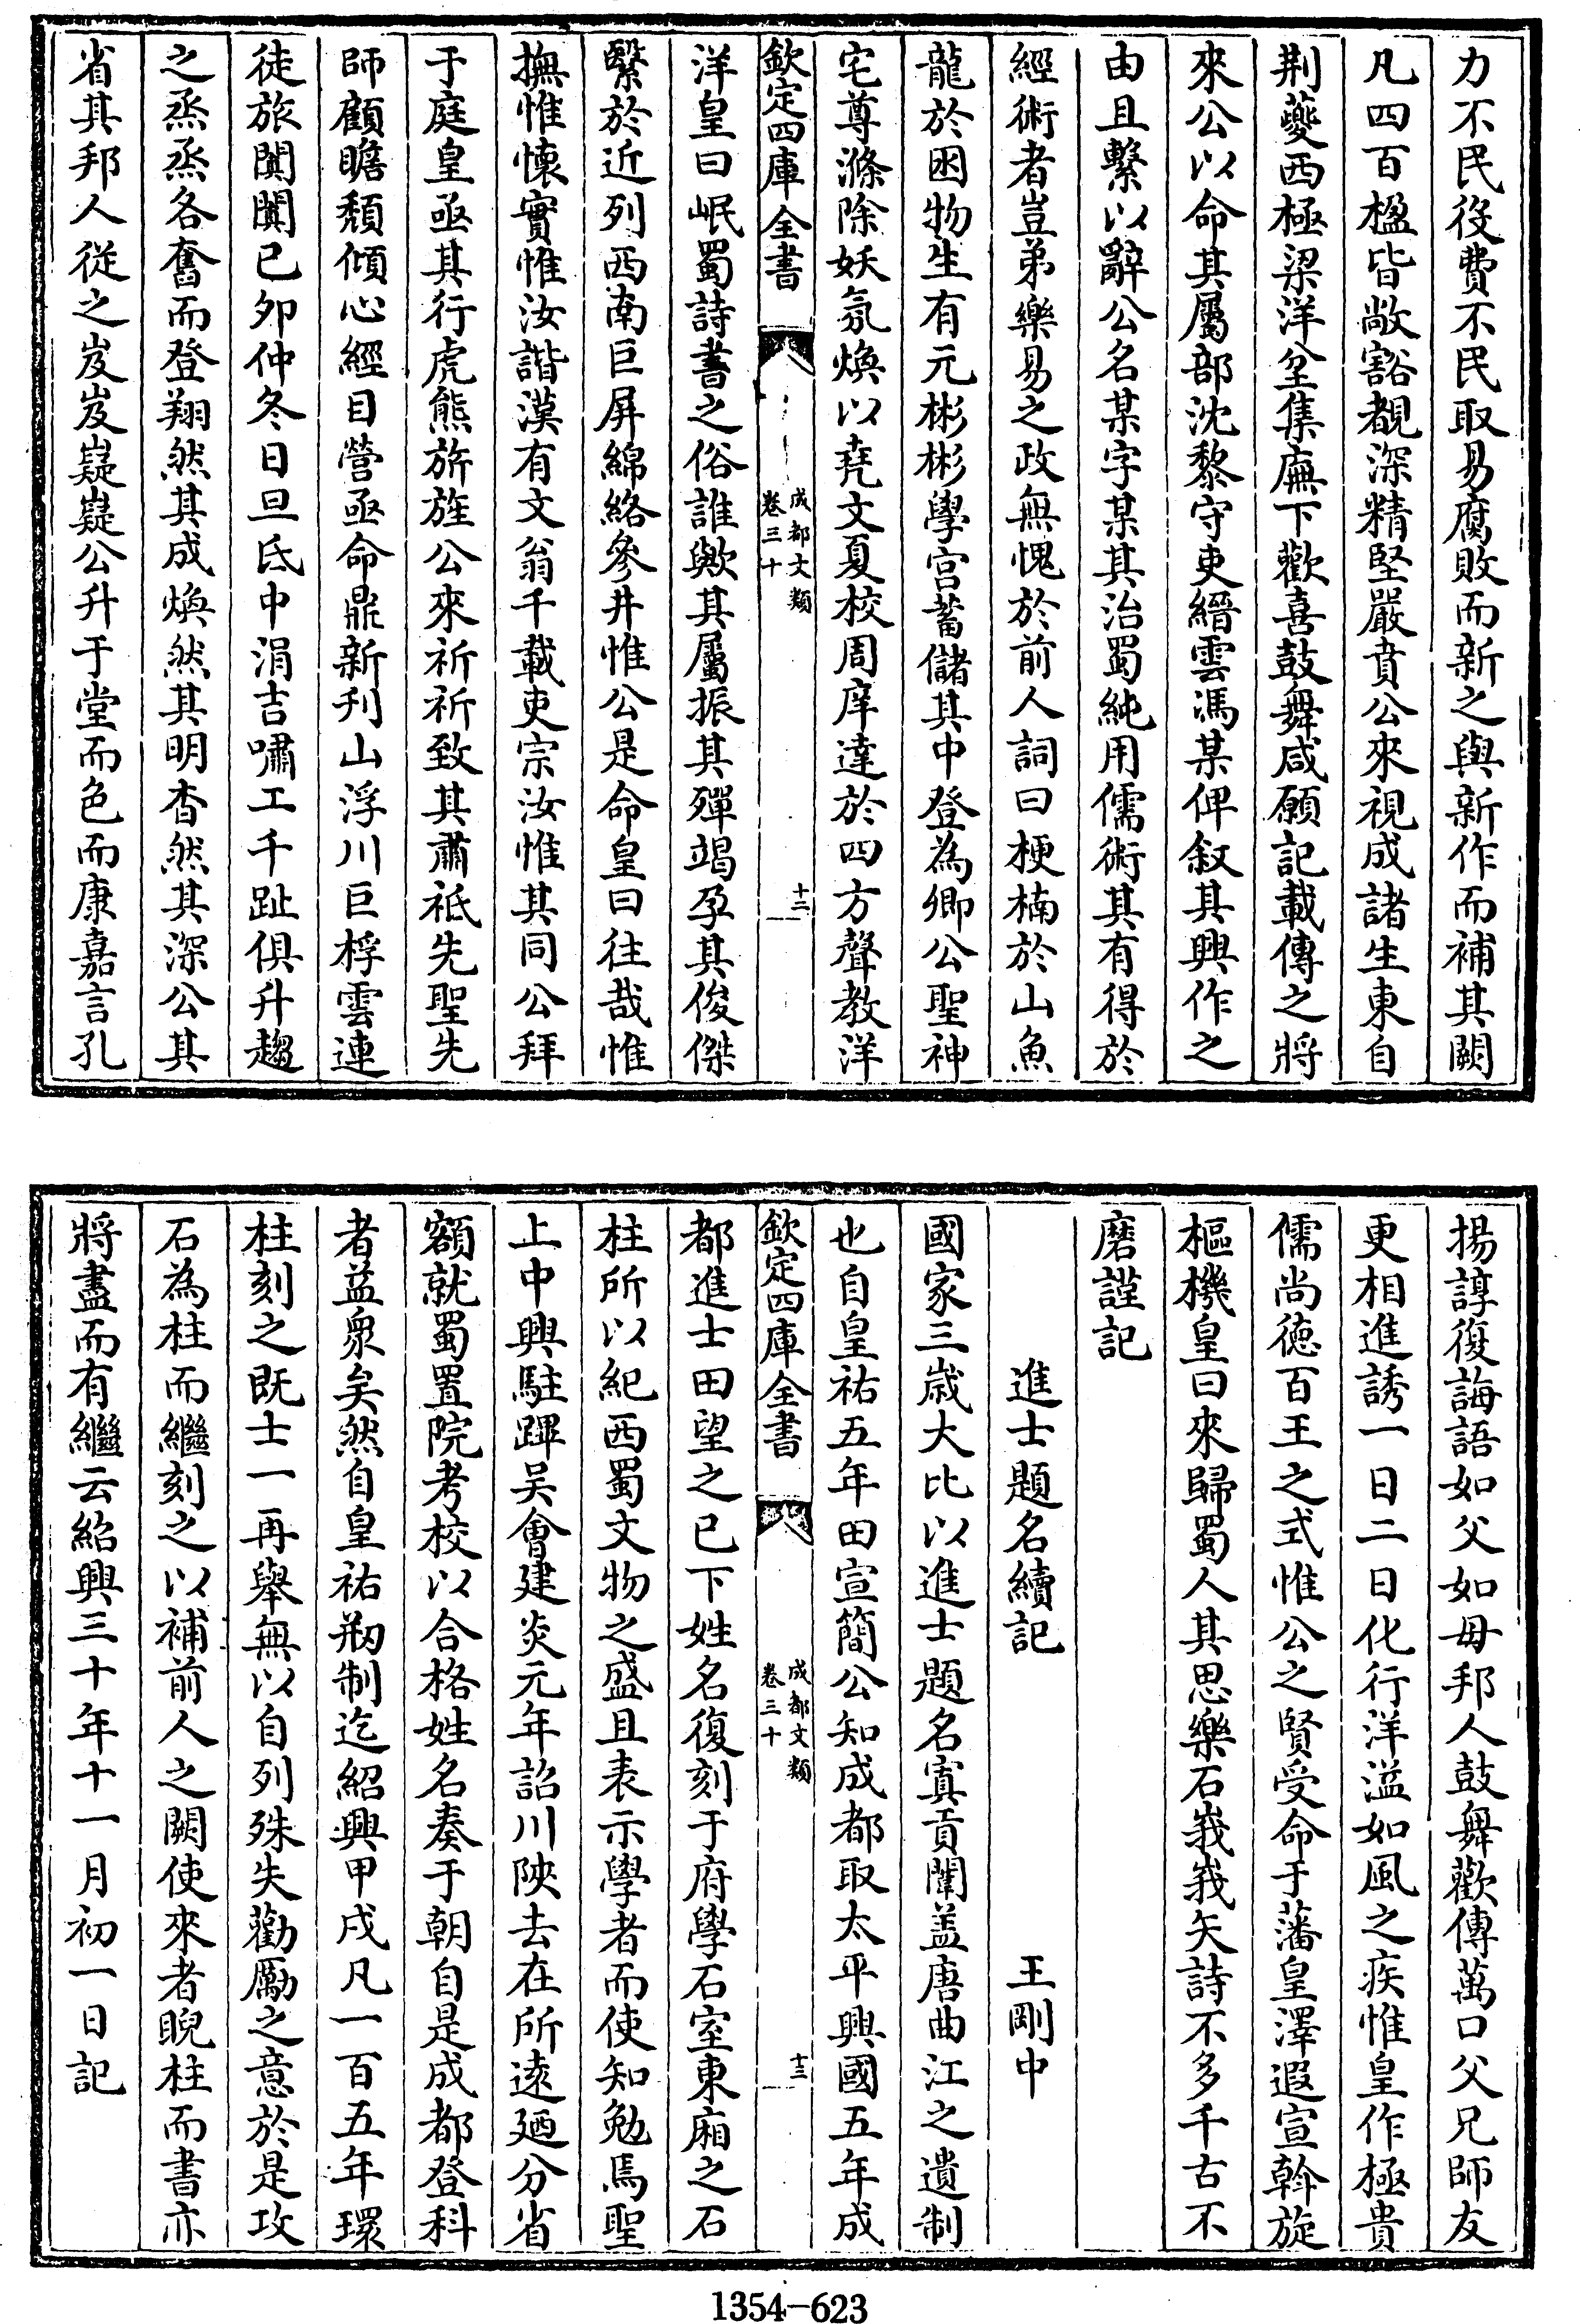 力不民役費不民取易腐敗而新之與新作而補其闕
凡四百楹皆敞豁覩深精堅嚴賁公來視成諸生東自
荆夔西極梁洋坌集廡下歡喜鼓舞咸願記載傳之將
來公以命其屬部沈黎守吏縉雲馮某俾叙其興作之
由且繫以辭公名某字某其治蜀純用儒術其有得於
經術者豈弟樂易之政無愧於前人詞曰梗楠於山魚
龍於困物生有元彬彬學宫蓄儲其中登為卿公聖神
宅尊滌除妖氛煥以堯文夏校周庠達於四方聲教洋
欽定四庫全書
成都文類
卷三十
十二
洋皇曰岷蜀詩書之俗誰歟其屬振其殫竭孕其俊傑
繄於近列西南巨屏綿絡參井惟公是命皇曰往哉惟
撫惟懐實惟汝諧漢有文翁千載吏宗汝惟其同公拜
于庭皇亟其行虎熊旂旌公來祈祈致其肅祗先聖先
師顧瞻頽傾心經目營亟命鼎新刋山浮川巨桴雲連
徒旅闐闐已夘仲冬日旦氐中涓吉嘯工千趾俱升趨
之烝烝各奮而登翔然其成煥然其明杳然其深公其
省其邦人從之岌岌嶷嶷公升于堂而色而康嘉言孔
揚諄復誨語如父如毋邦人鼓舞歡傳萬口父兄師友
更相進誘一日二日化行洋溢如風之疾惟皇作極貴
儒尚徳百王之式惟公之賢受命于藩皇澤遐宣斡旋
樞機皇曰來歸蜀人其思樂石峩峩矢詩不多千古不
磨謹記
進士題名續記 王剛中
國家三歳大比以進士題名寘貢闈盖唐曲江之遺制
也自皇祐五年田宣簡公知成都取太平興國五年成
欽定四庫全書
成都文類
卷三十
十三
都進士田望之已下姓名復刻于府學石室東廂之石
柱所以紀西蜀文物之盛且表示學者而使知勉焉聖
上中興駐蹕吴會建炎元年詔川陜去在所逺廼分省
額就蜀置院考校以合格姓名奏于朝自是成都登科
者益衆矣然自皇祐剏制迄紹興甲戌凡一百五年環
柱刻之既士一再舉無以自列殊失勸勵之意於是攻
石為柱而繼刻之以補前人之闕使來者睨柱而書亦
將盡而有繼云紹興三十年十一月初一日記
1354-623